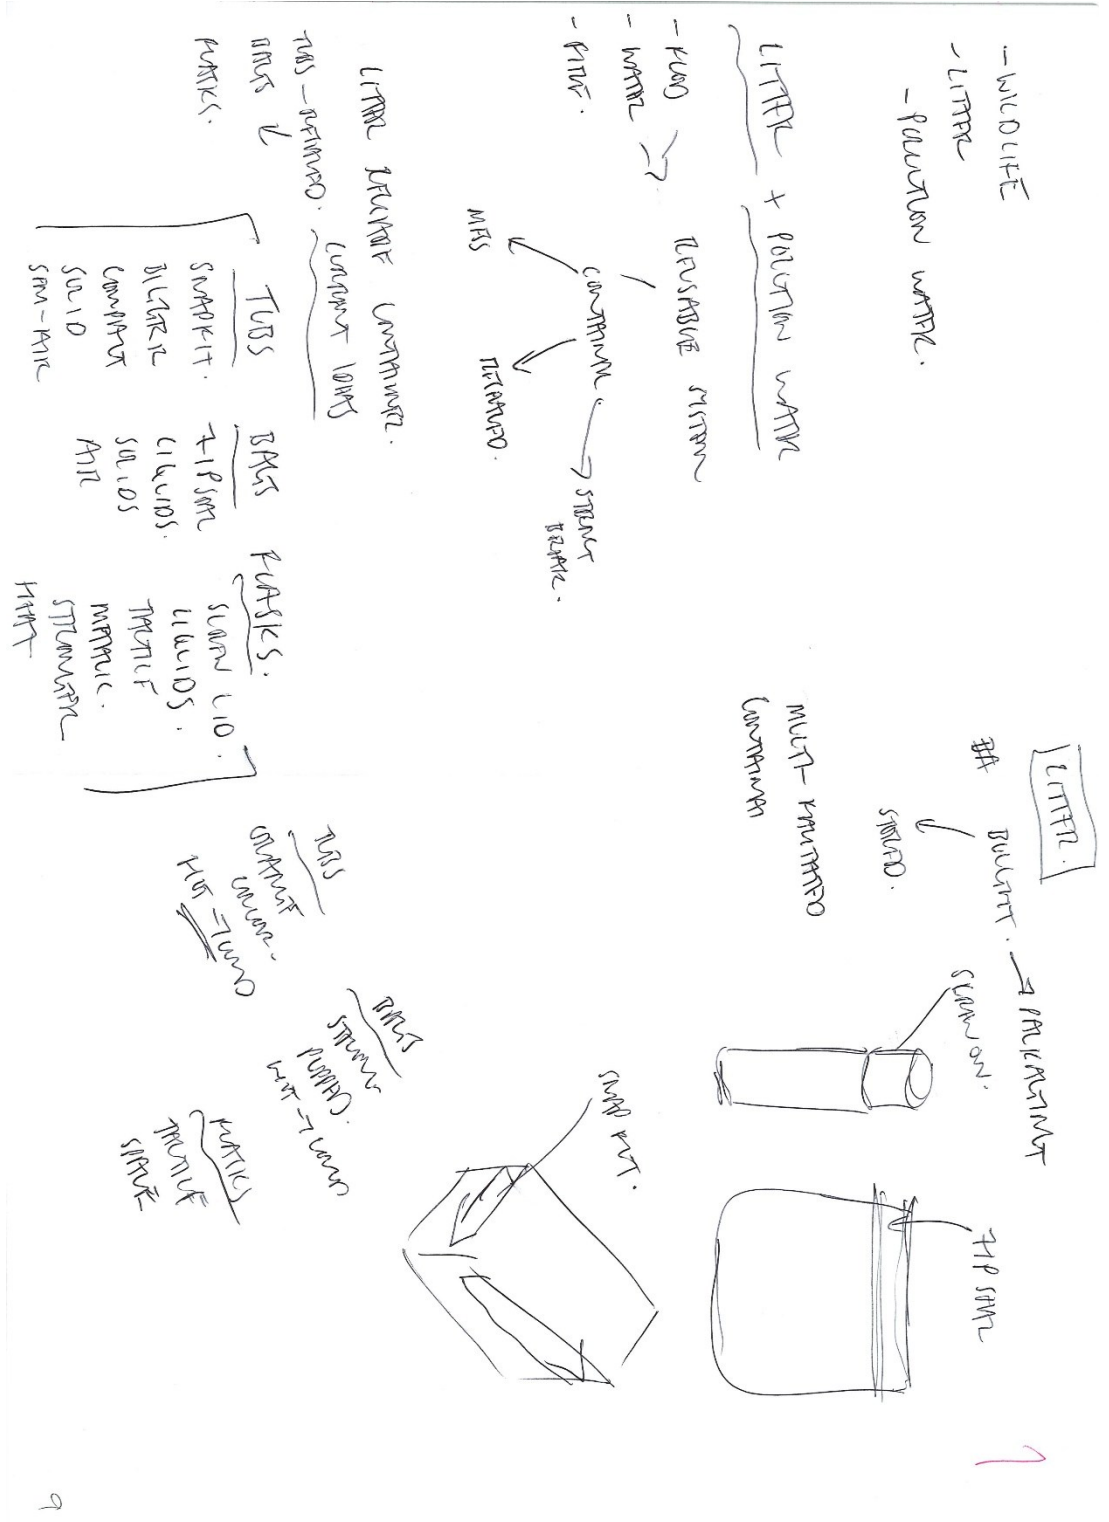 - WILDLIFE
- LITTER
- POLUTION WATER.
LITTER + POLUTION WATER
- FOOD
- WATER
REUSABLE SYSTEM
CONTAINER.
MESS
RETAINED.
STRENGT
BREAK.
LITTER RELEASE CONTAINER.
TUBS - RETAINED.
BAGS
FLASKS.
CURRENT IDEAS
TUBS
SNAPFIT.
BIGGER
COMPACT
SOLID
SEMI-AIR
BAGS
ZIPSEAL
LIQUIDS.
SOLIDS
AIR
FLASKS.
SCREW LID.
LIQUIDS.
TACTILE
METALIC.
STRONGER
HEAT
LITTER.
BOUGHT. → PACKAGING
STORED.
MULTI-FACITATED
CONTAINER
SCREW ON.
ZIP SEAL
SNAP FIT.
TUBS
CHANGE
COLOUR.
HOT → COLD
BAGS
STRONG
POPPED.
HOT → COLD
FLASKS
TACTILE
SPACE
9